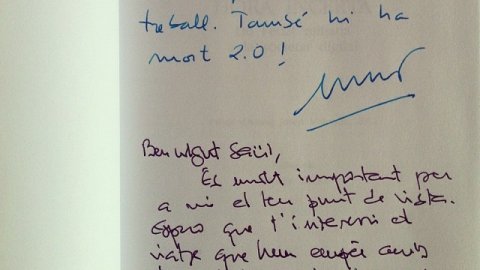 treball. També hi ha
mort 2.0!
Benvolgut Saül,
És molt important per
a mi el teu punt de vista.
Espero que t'interessi el
viatge que hem emprès amb